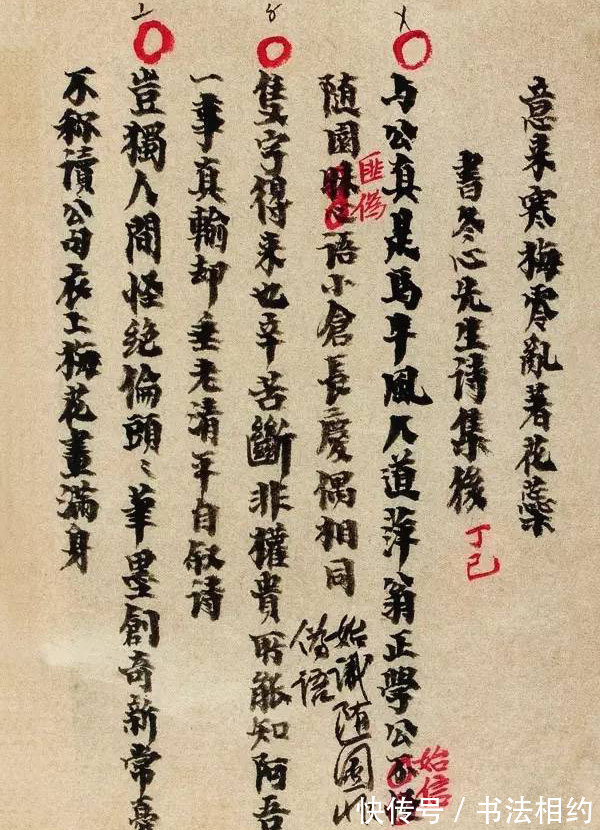 意来寒梅零亂著花蘂
書冬心先生诗集後
丁巳
与公真是馬牛風人道萍翁正學公
始信
随園心语小倉長慶偶相同
匪偽
始識随園
偽语
隻字得来也辛苦斷非權貴所能知阿吾
一事真輸却垂老清平自叙诗
豈獨人間怪絕倫頭〻筆墨創奇新常憂
不称讀公句衣上梅花畫滿身
快传号 / 书法相约